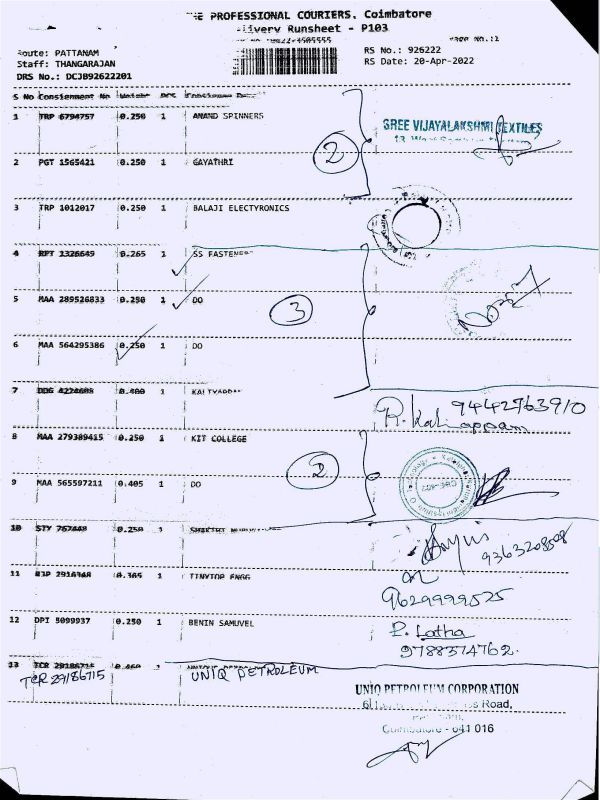 THE PROFESSIONAL COURIERS. Coimbatore
Delivery Runsheet - P103
Route: PATTANAM
RS No.: 926222
Staff: THANGARAJAN
RS Date: 20-Apr-2022
DRS No.: DCJB92622201
S No Consignment No Weight PCS Consignee
1 TRP 6794757 0.250 1 ANAND SPINNERS
SREE VIJAYALAKSHMI TEXTILES
2
2 PGT 1565421 0.250 1 GAYATHRI
3 TRP 1012017 0.250 1 BALAJI ELECTYRONICS
4 RPT 1326649 0.265 1 SS FASTENER
5 MAA 289526833 0.250 1 DO
3
6 MAA 564295386 0.250 1 DO
7 0.400 1
9442763910
8 MAA 279389415 0.250 1 KIT COLLEGE
2
9 MAA 565597211 0.405 1 DO
10 STY 767448 0.250 1
9363208508
11 0.365 1 TINYTOP ENGG
9629999525
12 DPI 5099937 0.250 1 BENIN SAMUVEL
P. Latha
9788374762.
13 TCR 29186715 0.460 1
TCR 29186715 UNIQ PETROLEUM
UNIQ PETROLEUM CORPORATION
Road,
Coimbatore - 641 016